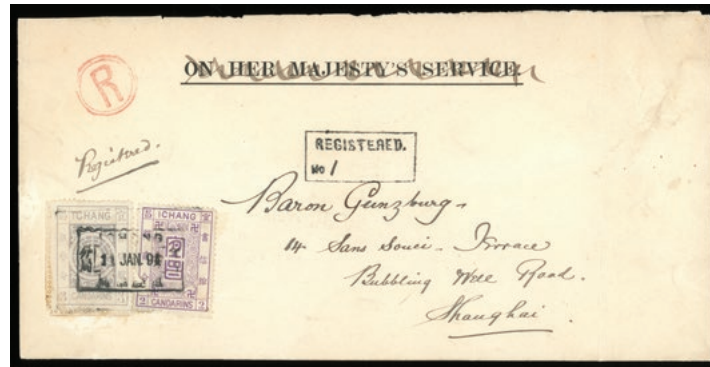 R
ON HER MAJESTY'S SERVICE.
REGISTERED.
No 1
Registered.
Baron Gunzburg
14 Sans Souci Terrace
Bubbling Well Road.
Shanghai.
ICHANG
ICHANG
11 JAN. 9
CANDARINS
2 CANDARINS 2